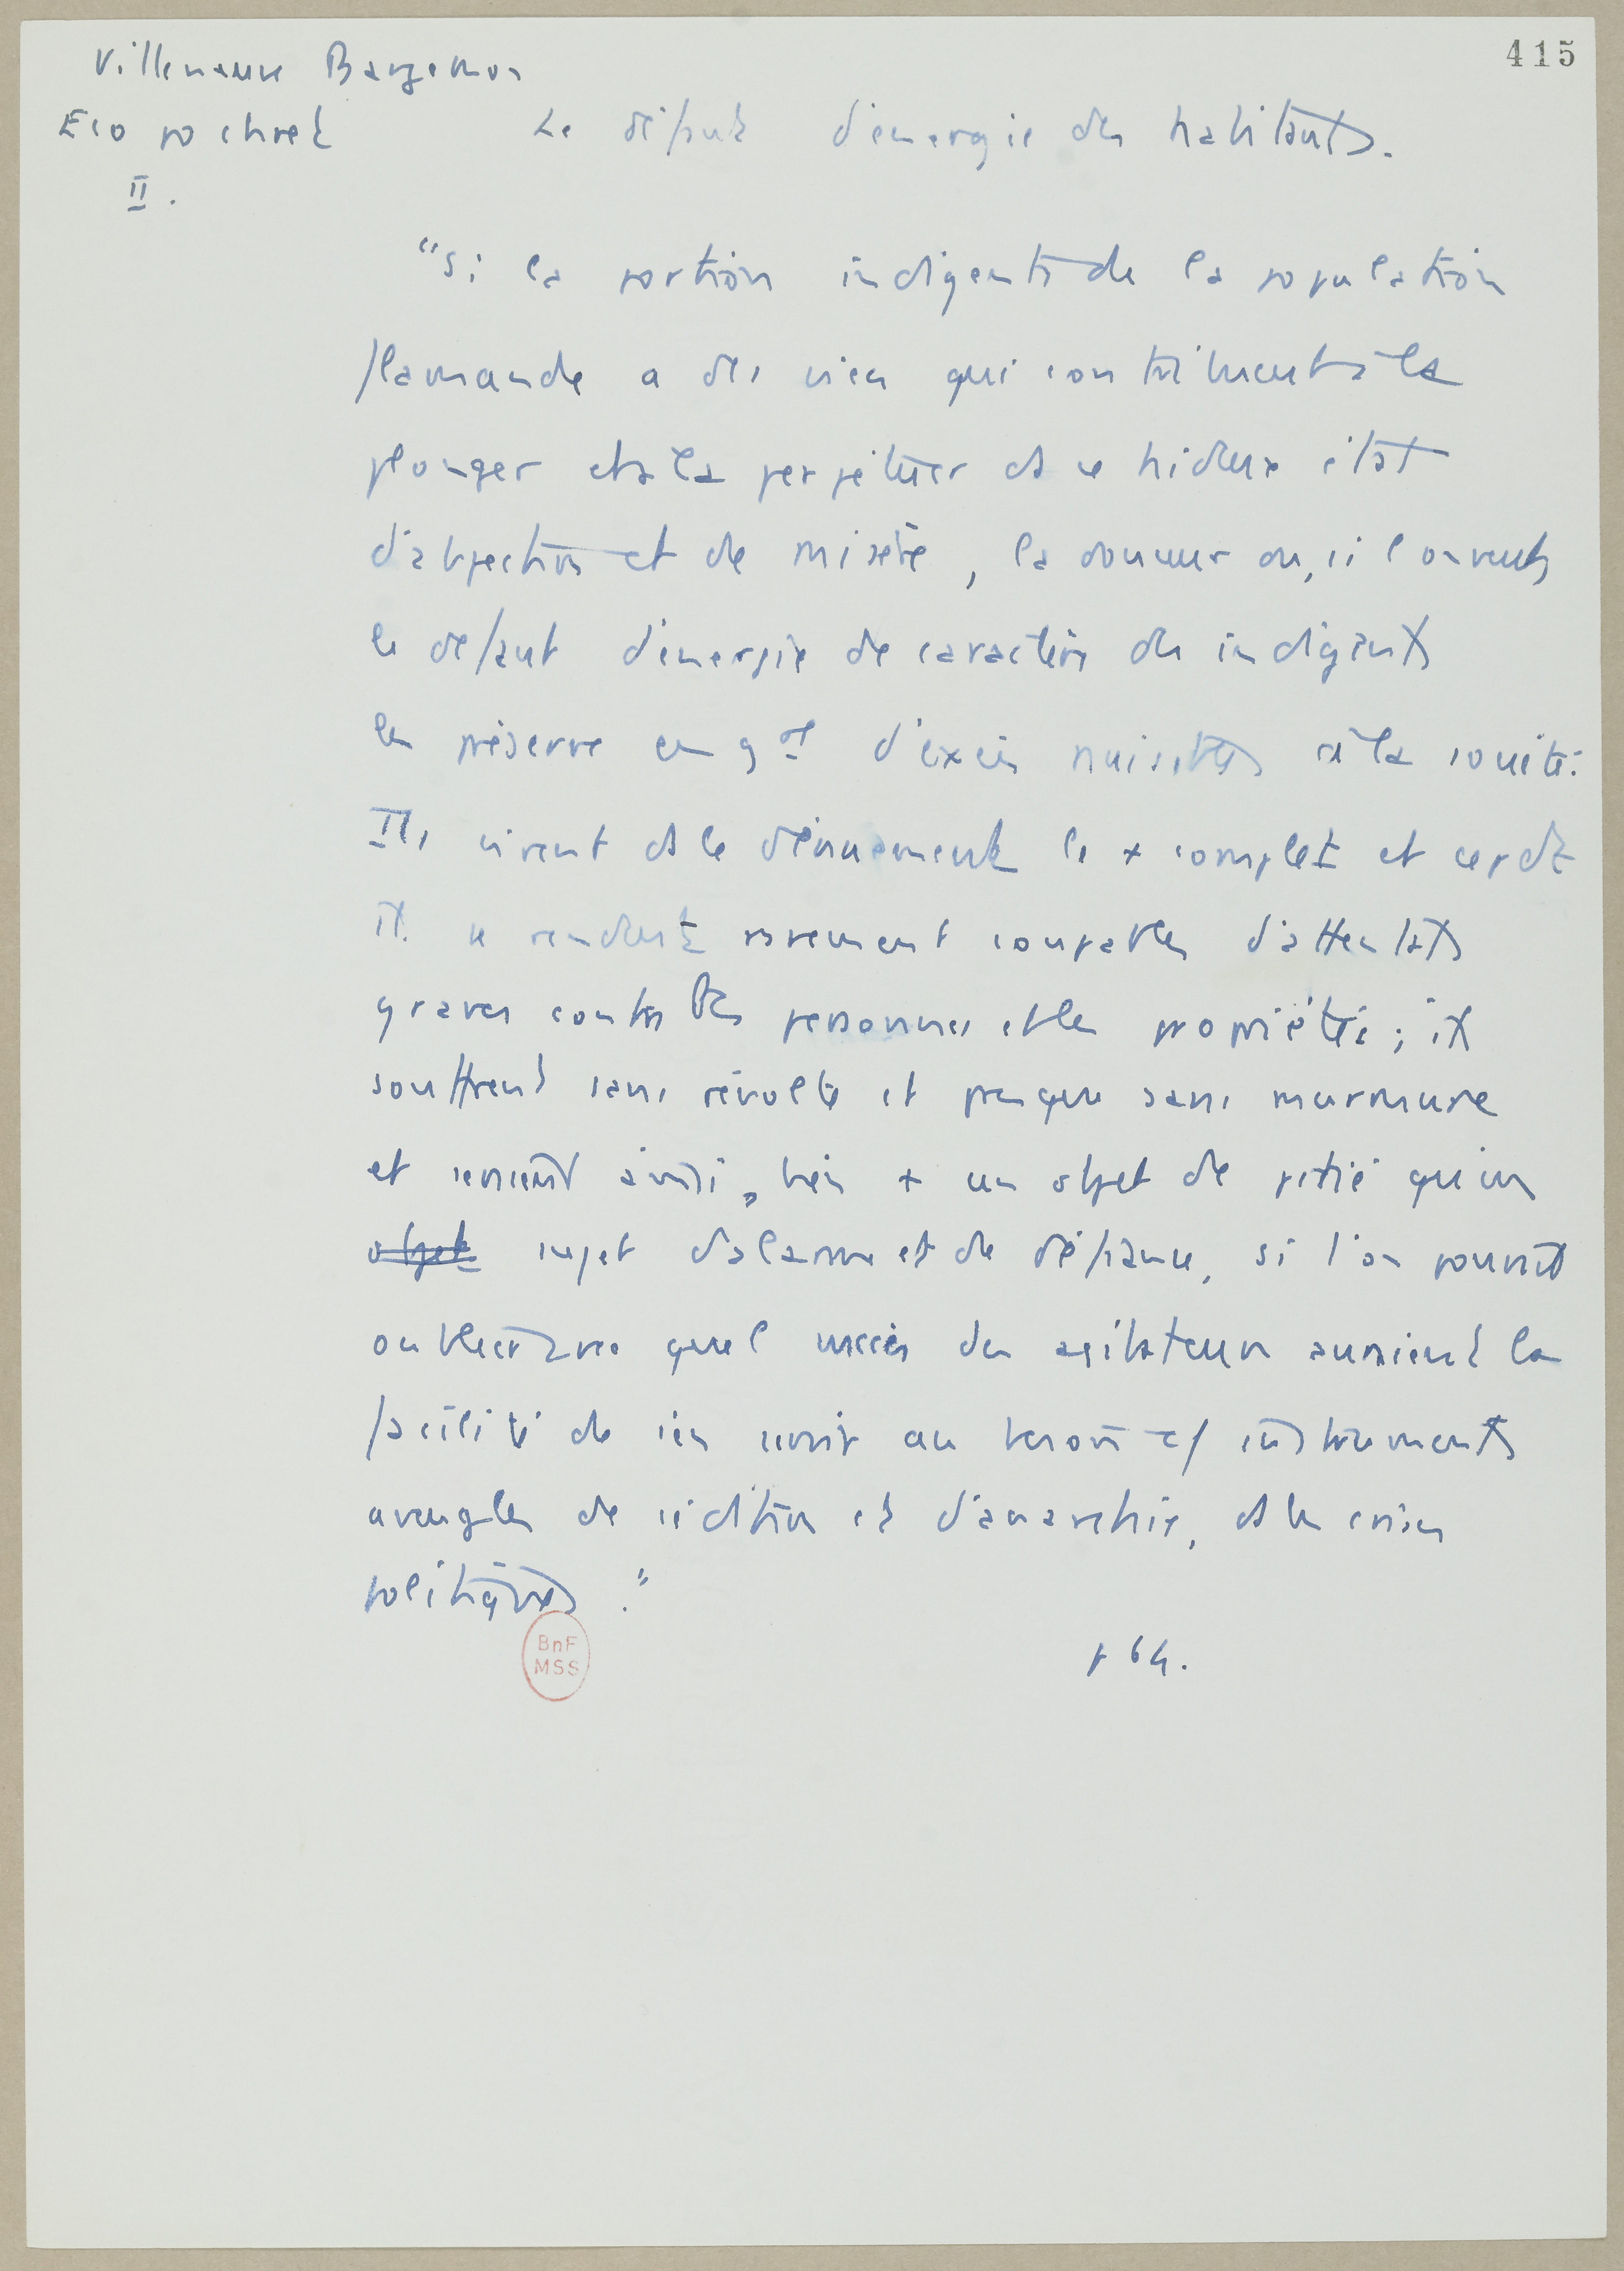 415
Villeneuve Bargemon
Eco po chret
II.
Le défaut d'énergie des habitants.
"Si la portion indigente de la population
flamande a des vices qui contribuent à la
plonger et à la perpétuer ds ce hideux état
d'abjection et de misère, la douceur ou, si l'on veut,
le défaut d'énergie de caractère des indigents
les préserve en gal d'excès nuisibles à la société:
Ils vivent ds le dénuement le + complet et cepdt
ils se rendent rarement coupables d'attentats
graves contre les personnes et les propriétés; ils
souffrent sans révolte et presque sans murmure
et seraient ainsi, bien + un objet de pitié qu'un
objet sujet d'alarme et de défiance, si l'on pouvait
oublier avec quel succès des agitateurs auraient la
facilité de s'en servir au besoin cf instruments
aveugles de sédition et d'anarchie, ds les crises
politiques."
p 64.
BnF
MSS